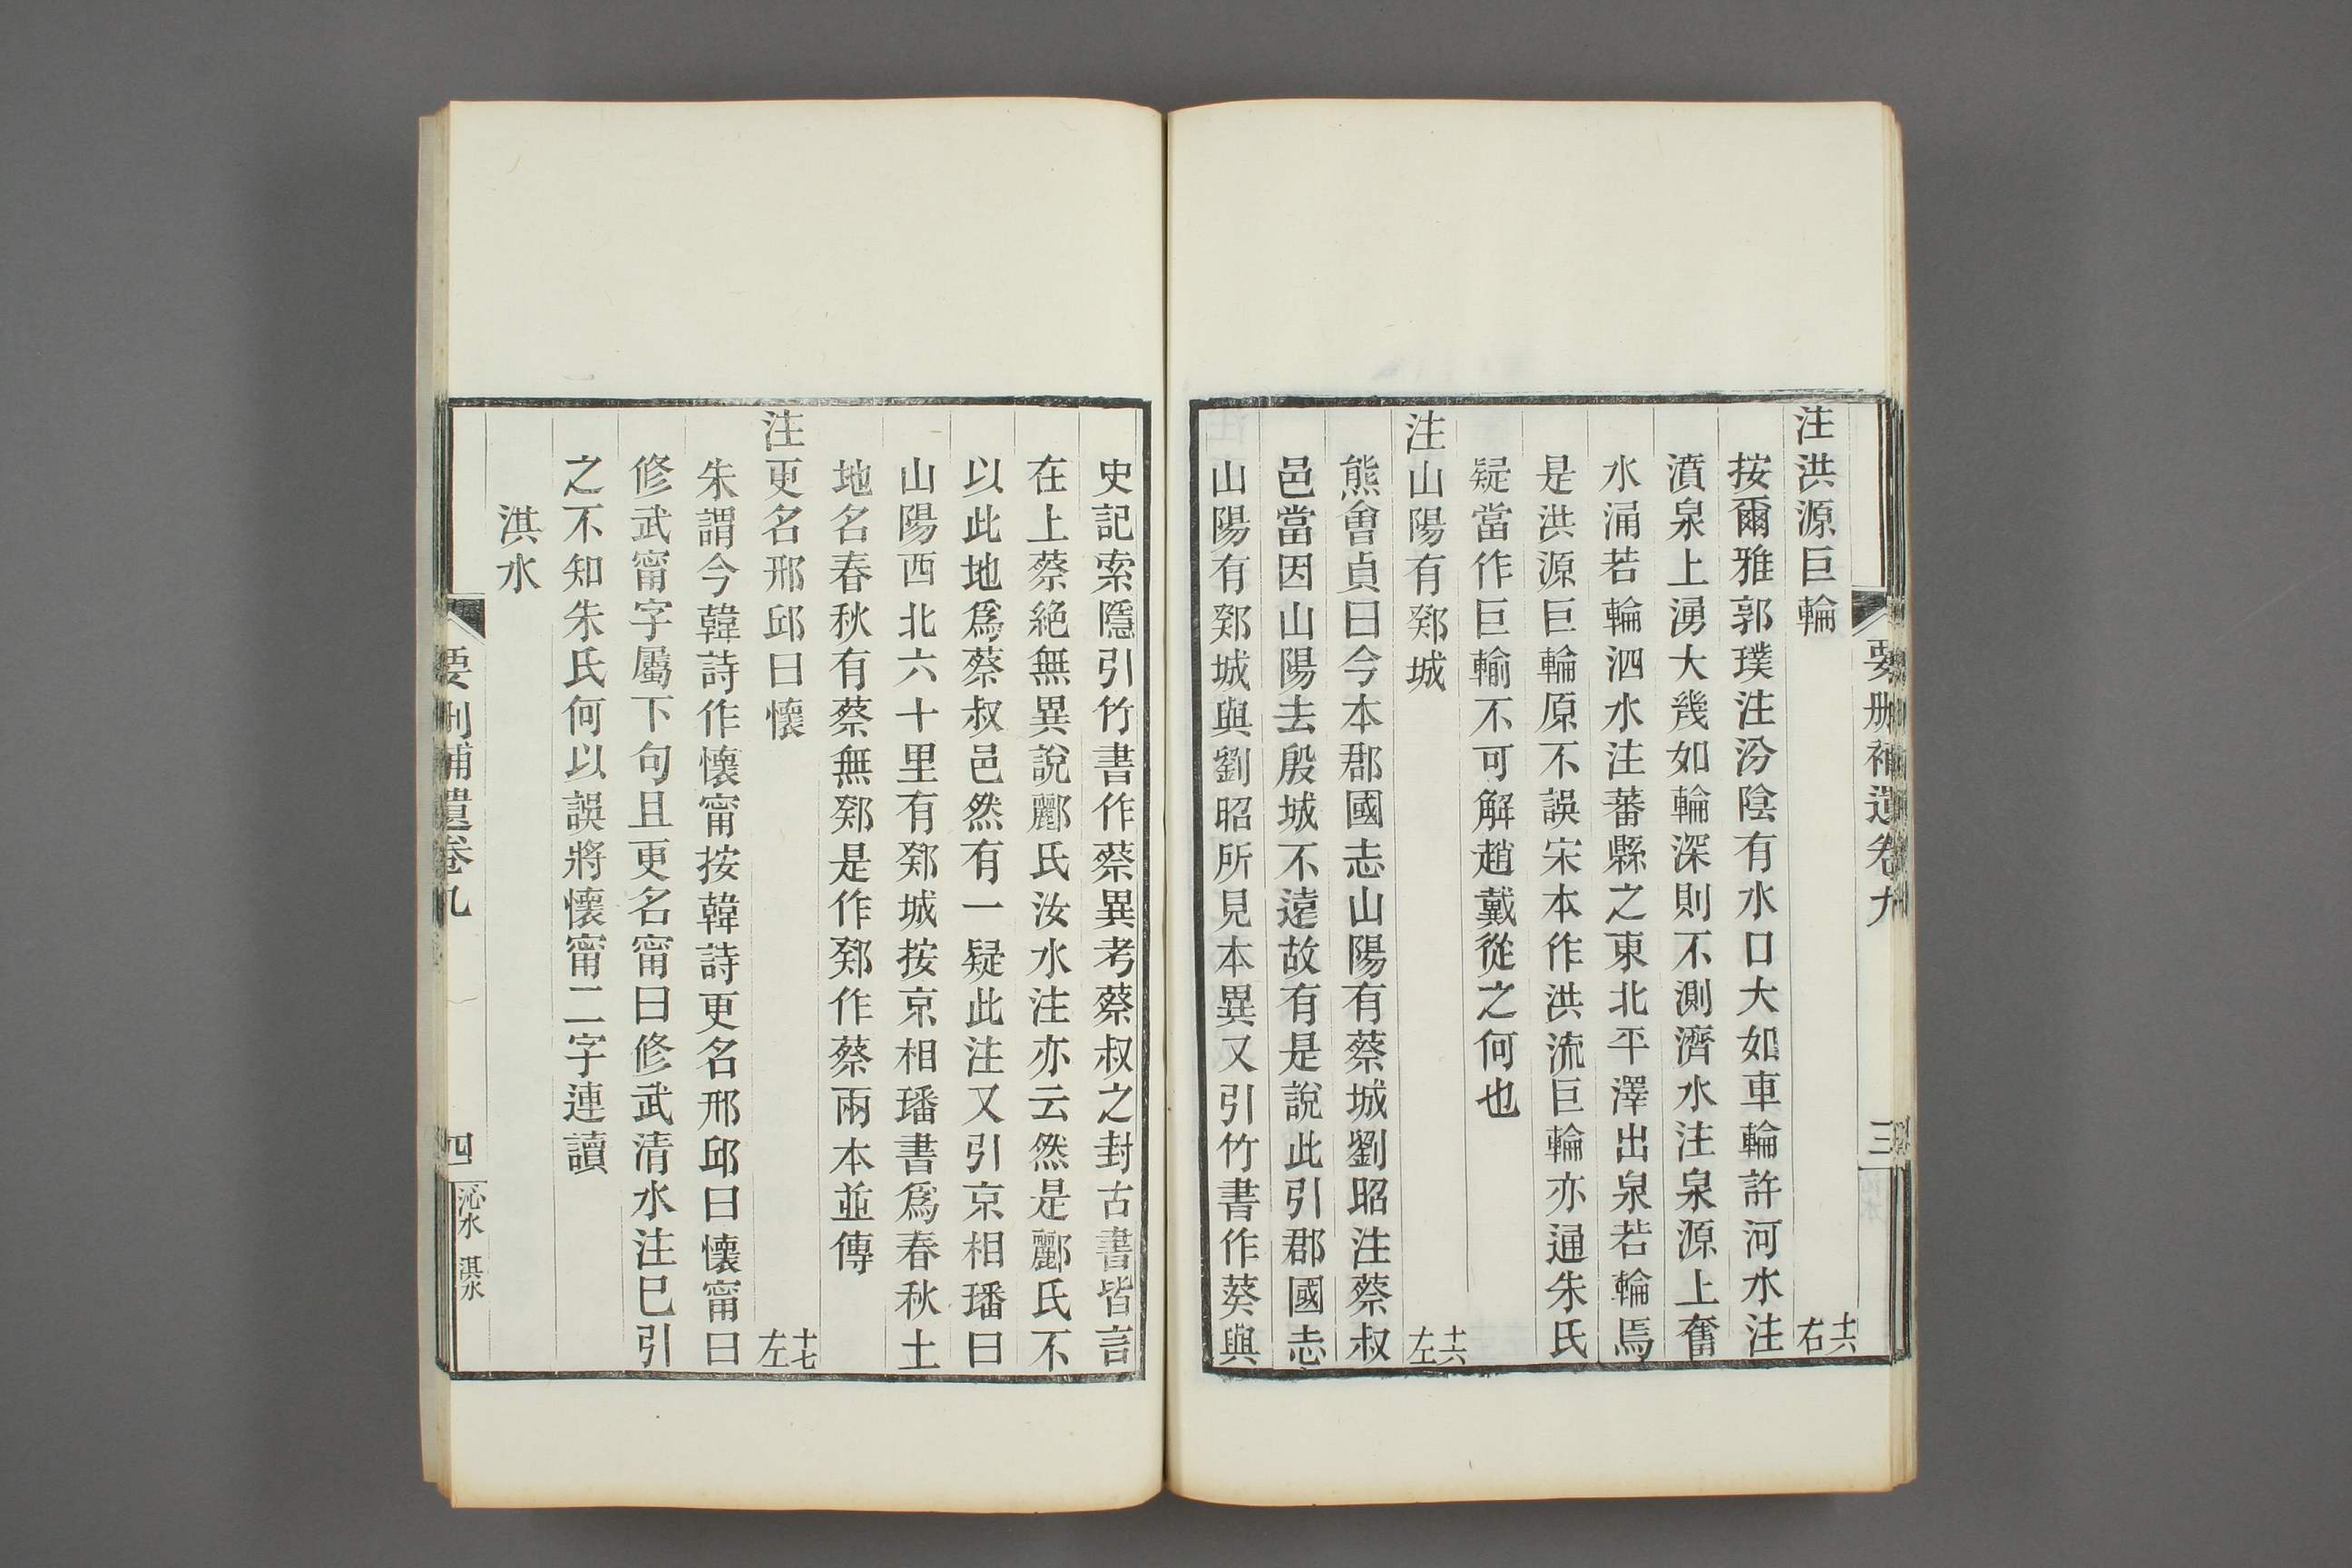 要刪補遺卷九
三
注洪源巨輪 十六右
按爾雅郭璞注汾陰有水口大如車輪許河水注
濆泉上湧大幾如輪深則不測濟水注泉源上奮
水涌若輪泗水注蕃縣之東北平澤出泉若輪焉
是洪源巨輪原不誤宋本作洪流巨輪亦通朱氏
疑當作巨輸不可解趙戴從之何也
注山陽有鄈城 十六左
熊會貞曰今本郡國志山陽有蔡城劉昭注蔡叔
邑當因山陽去殷城不遠故有是說此引郡國志
山陽有鄈城與劉昭所見本異又引竹書作葵與
史記索隱引竹書作蔡異考蔡叔之封古書皆言
在上蔡絕無異說酈氏汝水注亦云然是酈氏不
以此地爲蔡叔邑然有一疑此注又引京相璠曰
山陽西北六十里有鄈城按京相璠書爲春秋土
地名春秋有蔡無鄈是作鄈作蔡兩本並傳
注更名邢邱曰懷 十七左
朱謂今韓詩作懷甯按韓詩更名邢邱曰懷甯曰
修武甯字屬下句且更名甯曰修武清水注巳引
之不知朱氏何以誤將懷甯二字連讀
淇水
要刪補遺卷九
四
沁水 淇水